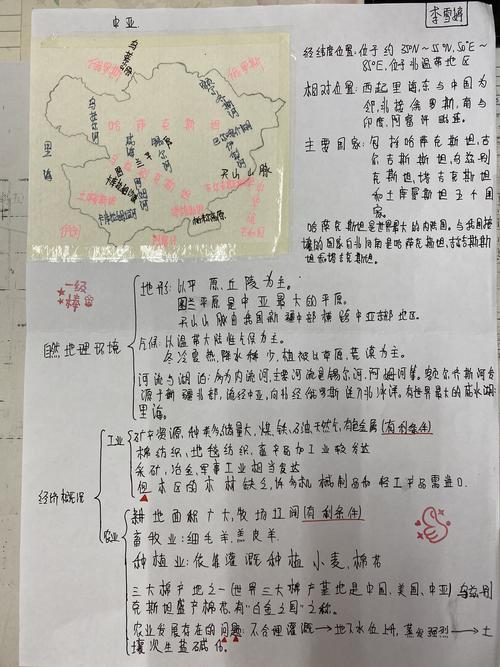 中亚
李雪婷
俄罗斯
俄罗斯
哈萨克斯坦
里海
咸海
天山山脉
帕米尔高原
伊朗
经纬度位置:位于约35°N~55°N,50°E~
85°E,位于北温带地区
相对位置:西起里海,东与中国为
邻,北接俄罗斯,南与
印度,阿富汗毗连。
主要国家:包括哈萨克斯坦,吉
尔吉斯斯坦,乌兹别
克斯坦,塔吉克斯坦
和土库曼斯坦五个国
家。
哈萨克斯坦是世界最大的内陆国。与我国接
壤的国家自北向南是哈萨克斯坦,吉尔吉斯斯
坦和塔吉克斯坦。
一级
棒
自然地理环境
地形:以平原、丘陵为主。
图兰平原是中亚最大的平原。
天山山脉自我国新疆中部横贯中亚吉部地区。
气候:以温带大陆性气候为主。
冬冷夏热,降水稀少,植被以草原,荒漠为主。
河流与湖泊:多为内流河,主要河流是锡尔河,阿姆河等。额尔齐斯河发
源于新疆北部,流经中亚,向北经俄罗斯注入北冰洋。有世界最大的咸水湖:
里海。
经济概况
工业
矿产资源,种类多,储量大,煤,铁,石油,天然气,有色金属(有利条件)
棉纺织、地毯纺织,畜产品加工业较发达
采矿,冶金,军事工业相当发达
但本区的木材缺乏,许多机械制品和轻工产品需进口.
农业
耕地面积广大,牧场辽阔(有利条件)
畜牧业:细毛羊,羔皮羊.
种植业:依靠灌溉种植小麦,棉花
三大棉产地之一(世界三大棉产基地是中国、美国、中亚)乌兹别
克斯坦盛产棉花,有“白金之国”之称。
农业发展存在的问题:不合理灌溉→地下水位上升,蒸发强烈→土
壤次生盐碱化。